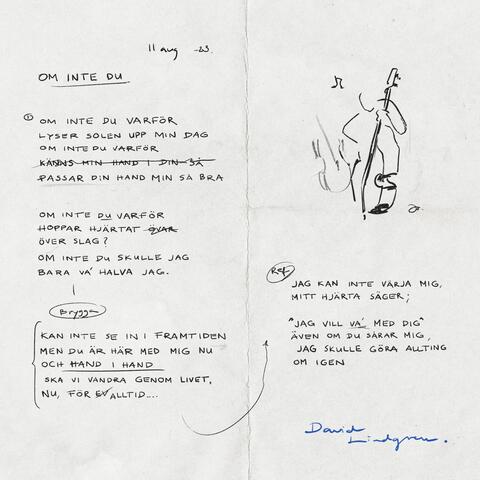 11 aug -23
OM INTE DU
① OM INTE DU VARFÖR
LYSER SOLEN UPP MIN DAG
OM INTE DU VARFÖR
KÄNNS MIN HAND I DIN SÅ
PASSAR DIN HAND MIN SÅ BRA
OM INTE DU VARFÖR
HOPPAR HJÄRTAT ÖVAR
ÖVER SLAG?
OM INTE DU SKULLE JAG
BARA VA' HALVA JAG.
Brygga
KAN INTE SE IN I FRAMTIDEN
MEN DU ÄR HÄR MED MIG NU
OCH HAND I HAND
SKA VI VANDRA GENOM LIVET,
NU, FÖR EVALLTID....
Ref
JAG KAN INTE VÄRJA MIG,
MITT HJÄRTA SÄGER;
"JAG VILL VA' MED DIG"
ÄVEN OM DU SÅRAR MIG,
JAG SKULLE GÖRA ALLTING
OM IGEN
David
Lindgren.